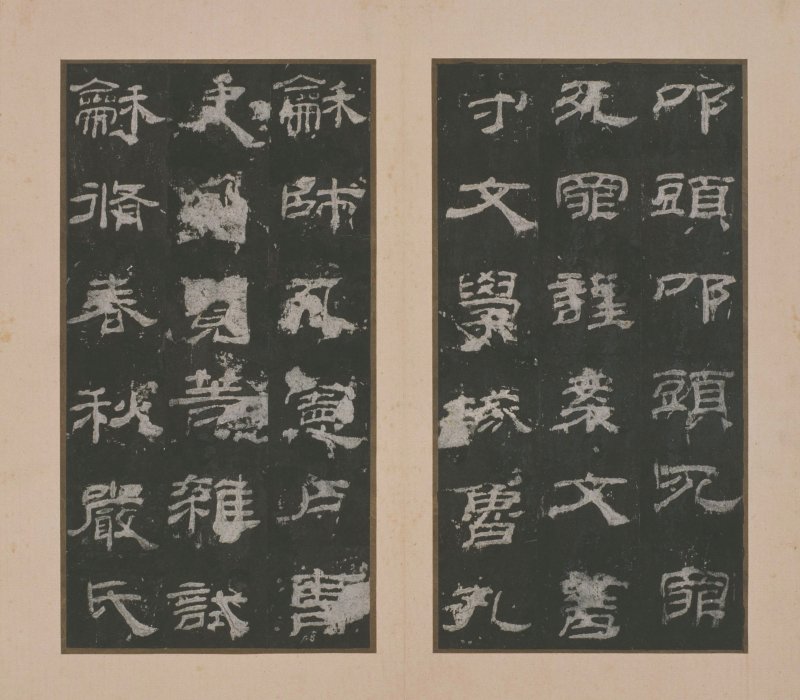 叩頭叩頭死罪
死罪謹案文書
守文學掾魯孔
龢師孔憲戶曹
史覽等雜試
龢脩春秋嚴氏